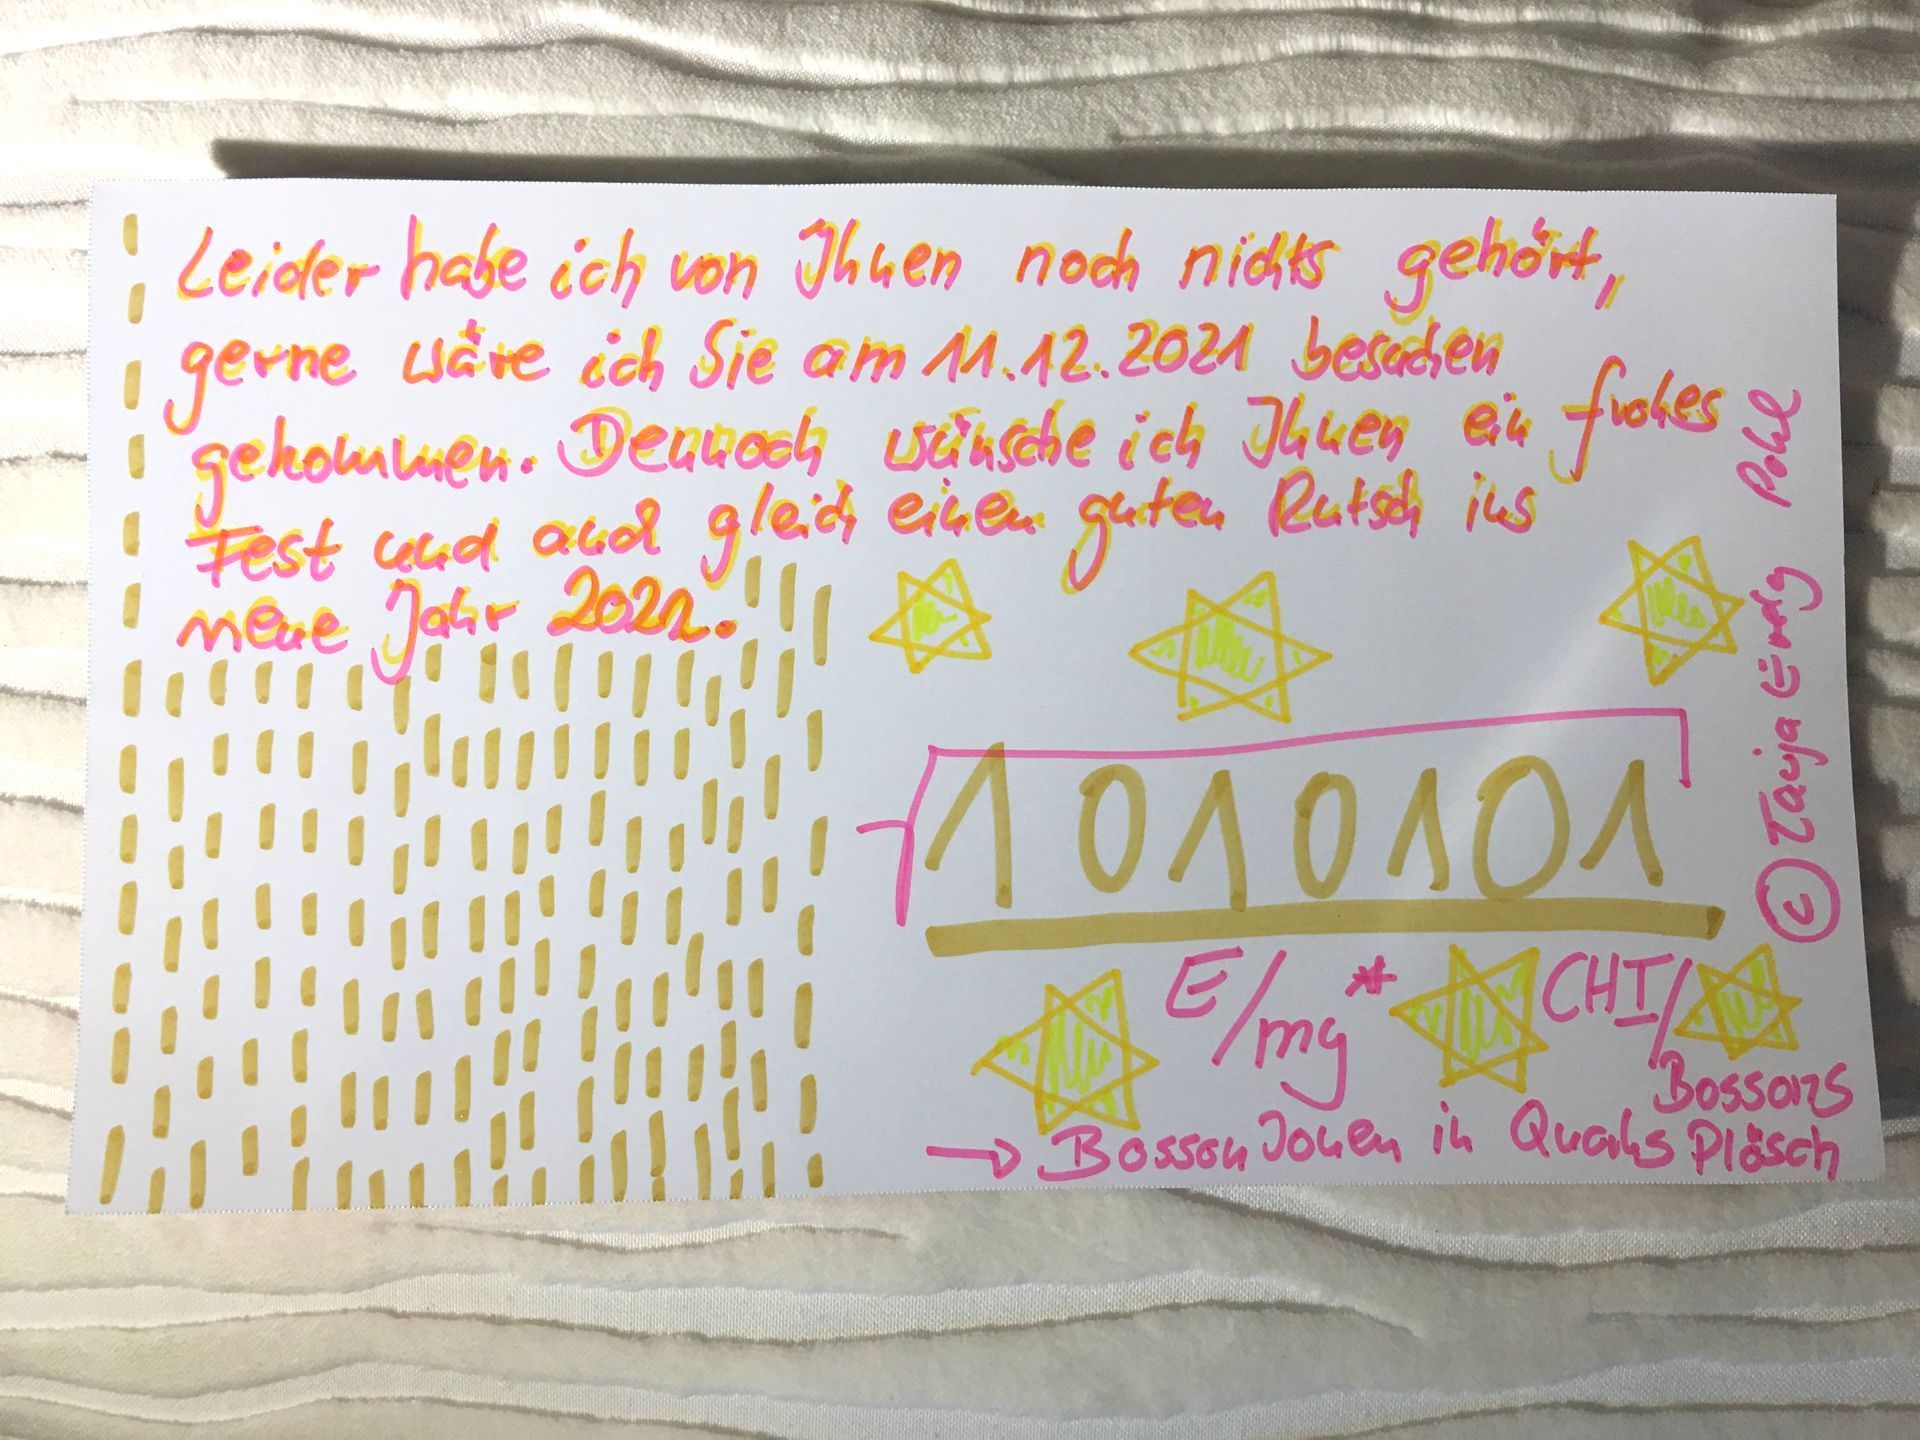 Leider habe ich von Ihnen noch nichts gehört,
gerne wäre ich Sie am 11.12.2021 besuchen
gekommen. Dennoch wünsche ich Ihnen ein frohes
Fest und auch gleich einen guten Rutsch ins
neue Jahr 2022.
1010101
E/mg* CHI/
Bossons
→ Bosson Ionen in Quarks Plösch
© Tanja Pohl